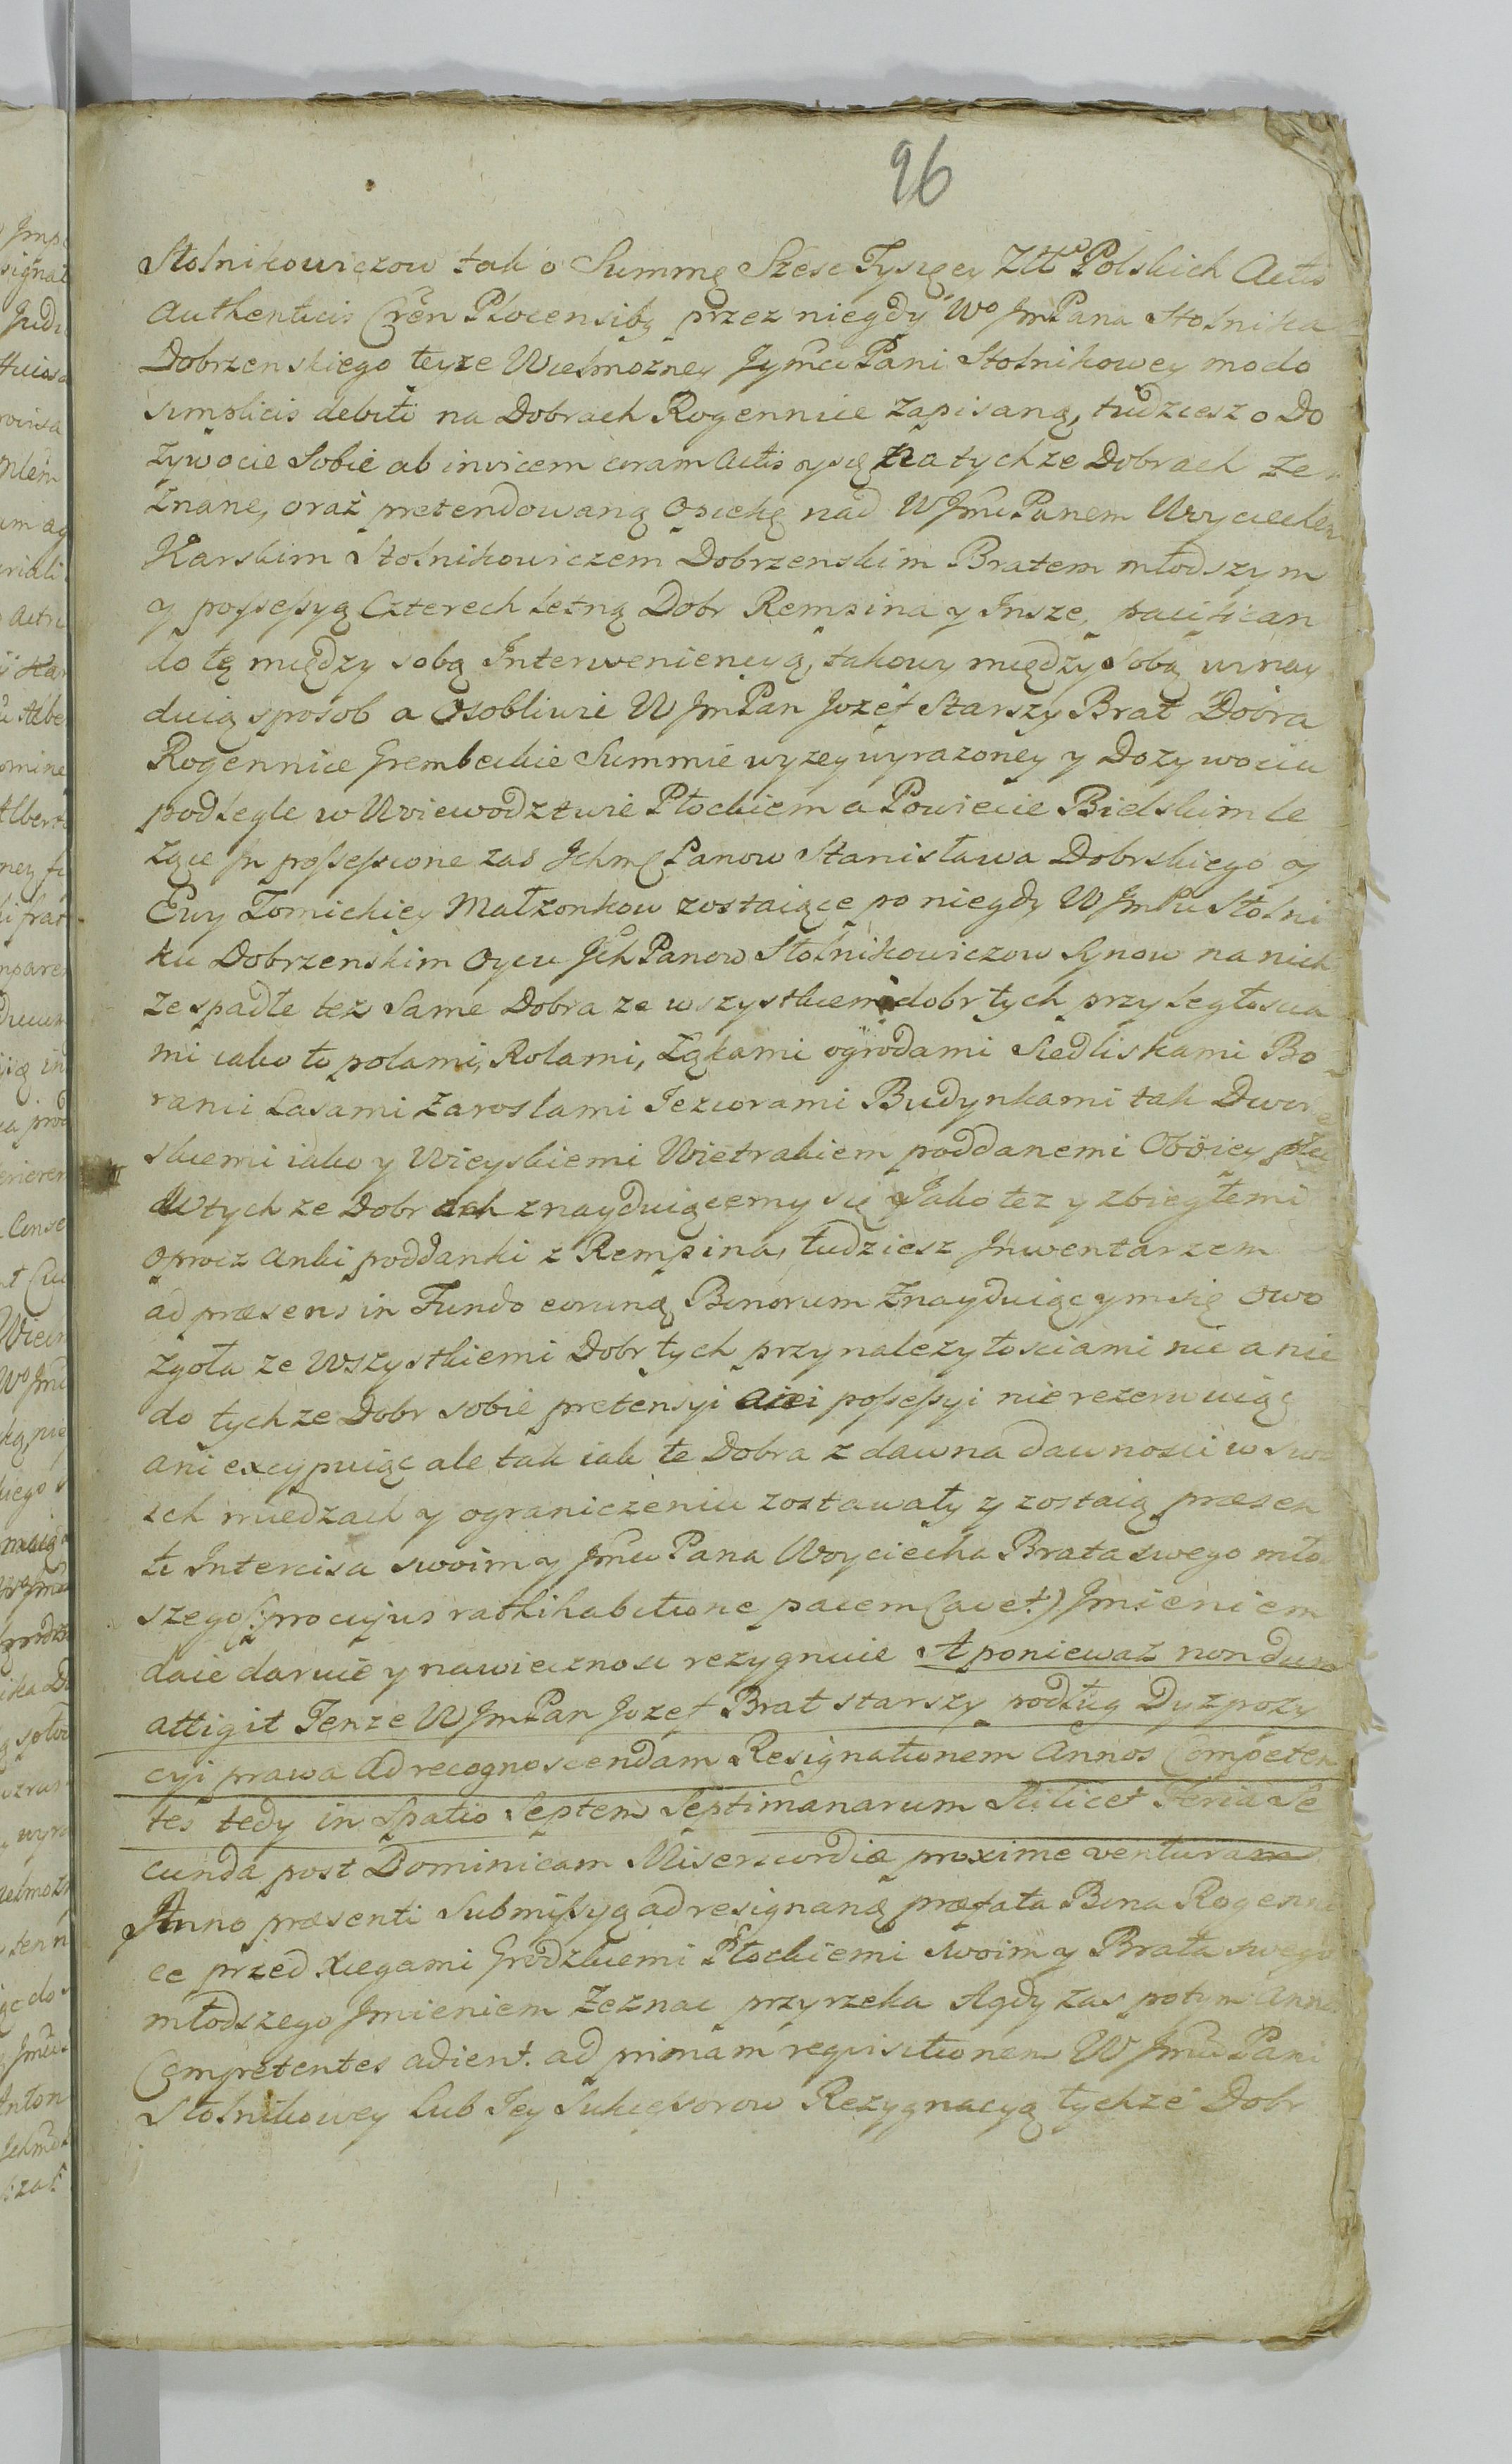 96
Stolnikowiczow tak o Summę Szesc Tysięcy Złł Polskich Actis
Authenticis Cren Plocensibq przez niegdy Wo JmPana Stolnika
Dobrzenskiego teyze Wielmozney Jymci Pani Stolnikowey modo
simplicis debiti na Dobrach Rogennice zapisaną, tudziesz o Do
zywocie Sobie ab invicem coram Actis na tychze Dobrach ze
znane, oraz pretendowaną Opiekę nad WJmci Panem Woyciechem
Karskim Stolnikowiczem Dobrzenskim Bratem młodszym
y possessyą Czterechletną Dobr Rempina y Insze, pacifican
do tę między sobą Interweniencyą, takowy między Sobą uznay
duią sposob a Osobliwie W JmPan Jozef Starszy Brat Dobra
Rogennice Grembeckie Summie wyzey wyrazoney y Dozywociu
podległe w Woiewodztwie Płockiem a Powiecie Bielskim le
zące In possessione zas Jchmę Panow Stanisława Dobrskiego y
Ewy Tomickiey Małzonkow zostaiące po niegdy W JmPu Stolni
ku Dobrzenskim Oycu Jch Panow Stolnikowiczow Synow na nich
ze spadłe tez Same Dobra ze wszystkiemi dobr tych przyległoscia
mi iako to polami, Rolami, Łąkami ogrodami Siedliskami Bo
rami Lasami zaroslami Jeziorami Budynkami tak Dwor
skiemi iako y Wieyskiemi Wietrakiem poddanemi Oboiey płci
W tychze Dobrach znayduiącemy się Jako tez y zbiegłemi
oprocz Anki poddanki z Rempina, tudziesz Jnwentarzem
ad præsens in Fundo eorunq Bonorum znayduiącym się owo
zgoła ze Wszystkiemi Dobr tych przynalezytosciami nic a nic
do tychze Dobr sobie pretensyi ani possessyi nie rezerwuiąc
ani excypuiąc ale tak iak te Dobra z dawna dawnosci w swo
ich miedzach y ograniczeniu zostawały y zostaią præsen
ti Intercisa swoim y Jmci Pana Woyciecha Brata swego mło
szego (: pro cujus rathihabitione pacem Cavet :) Jmieniem
daie daruie y na wiecznosc rezygnuie A poniewaz nondum
attigit Tenze W JmPan Jozef Brat starszy podług Dyzpozy
cyi prawa ad recognoscendam Resignationem Annos Competen
tes tedy in Spatio Septem Septimanarum Scilicet Feria Se
cunda post Dominicam Misericordiæ proxime venturam
Anno præsenti Submissyą ad resignanq præfata Bona Rogenni
ce przed Xięgami Grodzkiemi Płockiemi swoim y Brata swego
młodszego Jmieniem zeznac przyrzeka Agdy zas potym Annos
Competentes adient. ad primam requisitionem W Jmci Pani
Stolnikowey lub Jey Sukcessorow Rezygnacyą tychze Dobr